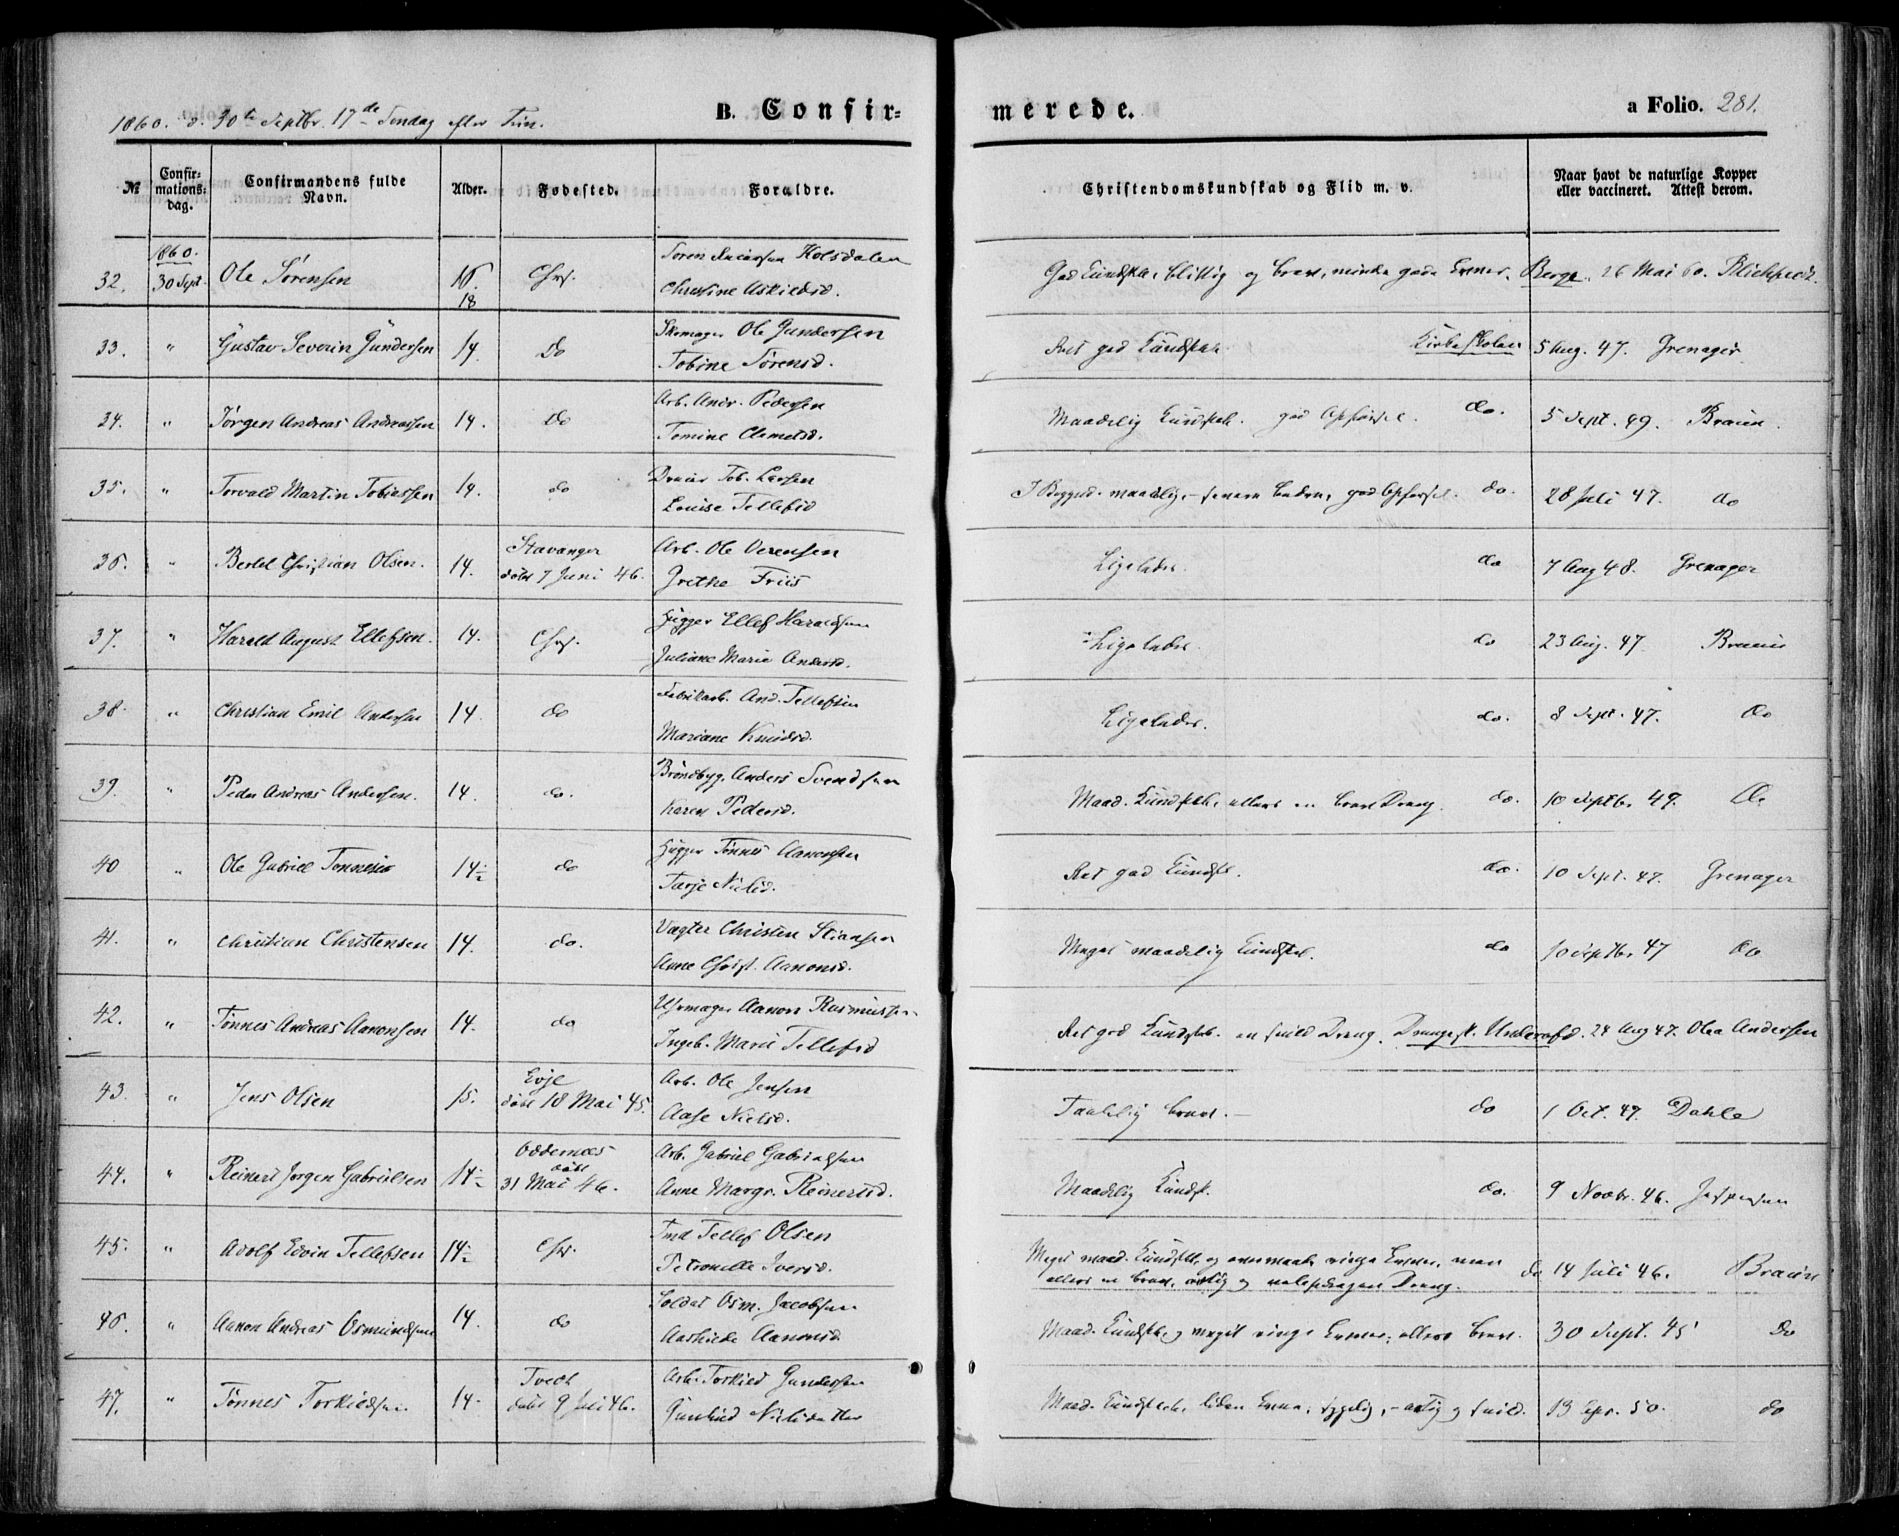 1860. d. 30te Septbr. 17de Søndag efter Trin.
B. Confirmerede.
a Folio. 281.
№ Confirmations-dag. Confirmandens fulde Navn. Alder. Fødested. Forældre. Christendomskundskab og Flid m. v. Naar havt de naturlige Kopper eller vaccineret. Attest derom.
1860.
Søren Holsdalen
32. 30 Sept. Ole Sørensen 16. Chrs. God Kundsk. flittig og brav, mindre gode Evner. Berge. 26 Mai 60.
18 Christine Askildsd.
Skomager Ole Gundersen
33. " Gustav Severin Gundersen 14. Do Ret god Kundskab Kirkeskolen 5 Aug. 47. Grenager
Tobine Sørensd.
Arb. Andr. Pedersen
34. " Jørgen Andreas Andreassen 14. Do Maadelig Kundskab. god Opførsel. do. 5 Sept. 49. Braun.
Tomine Clemetsd.
Tob. Larsen
35. " Torvald Martin Tobiassen 14. do I Begynd. maadelig, - senere bedre, god Opførsel. do. 28 Juli 47. do
Louise Tellefsd
Stavanger Arb. Ole Verensen
36. " Bertel Christian Olsen. 14. døbt 7 Juni 46. Ligeledes. do 7 Aug 48. Grenager
Grethe Friis
Hugger Ellef Haraldsen
37. " Harald August Ellefsen. 14. Chrs. Ligeledes. do 23 Aug. 47. Braun
Juliane Marie Andersd.
Fabrikarb. And. Tellefsen
38. " Christian Emil Andersen 14. do Ligeledes. do. 8 Sept. 47. Do
Mariane Knudsd.
Brøndbyg. Anders Svendsen
39. " Peder Andreas Andersen. 14. do. Maad. Kundskab, ellers en brav Dreng. do. 10 Septbr 47. Do
Karen Pedersd.
Hugger Tønnes Aanonsen
40 " Ole Gabriel Tønnesen 14½ do Ret god Kundsk. do. 10 Sept. 47. Grenager
Tarje Nielsd.
Vægter Christen Stiansen
41. " Christian Christensen 14. do. Meget maadelig Kundskab. do 10 Septbr. 47 do
Anne Christ. Aanonsd.
Uhrmager Aanon Rasmussen
42. " Tønnes Andreas Aanonsen 14. do Ret god Kundskab. en snild Dreng. Drengesk. Underafd. 24 Aug 47. Olea Andersen
Ingeb. Marie Tellefsd
Evje Arb. Ole Jensen
43. " Jens Olsen 15. døbt 18 Mai 45. Taalelig brav. - do 1 Oct. 47. Dahle
Aase Nielsd.
Oddernæs Arb. Gabriel Gabrielsen
44. " Reinert Jørgen Gabrielsen 14½ døbt 31 Mai 46. Maadelig Kundsk. do. 9 Novbr. 46. Jespersen
Anne Margr. Reinertsd.
Tellef Olsen
45. " Adolf Edvin Tellefsen 14½ Chrs. Meget maad. Kundskab, og overmaade ringe Evner, men do 14 Juli 46. Braun
Petronelle Iversd. ellers en brav, artig og velopdragen Dreng.
Soldat Osm. Jacobsen
46. " Aanon Andreas Osmundsen 14. do Maad. Kundskab og meget ringe Evner, ellers brav. 30 Sept. 45 Do
Aanonsd
Tvedt Arb. Torkild Gundersen
47. " Tønnes Torkildsen 14. døbt 9 Juli 46. Maad. Kundskab, liden Evne, sygelig, - artig og snild. 13 Apr. 50. do
Gunhild Nielsdatter